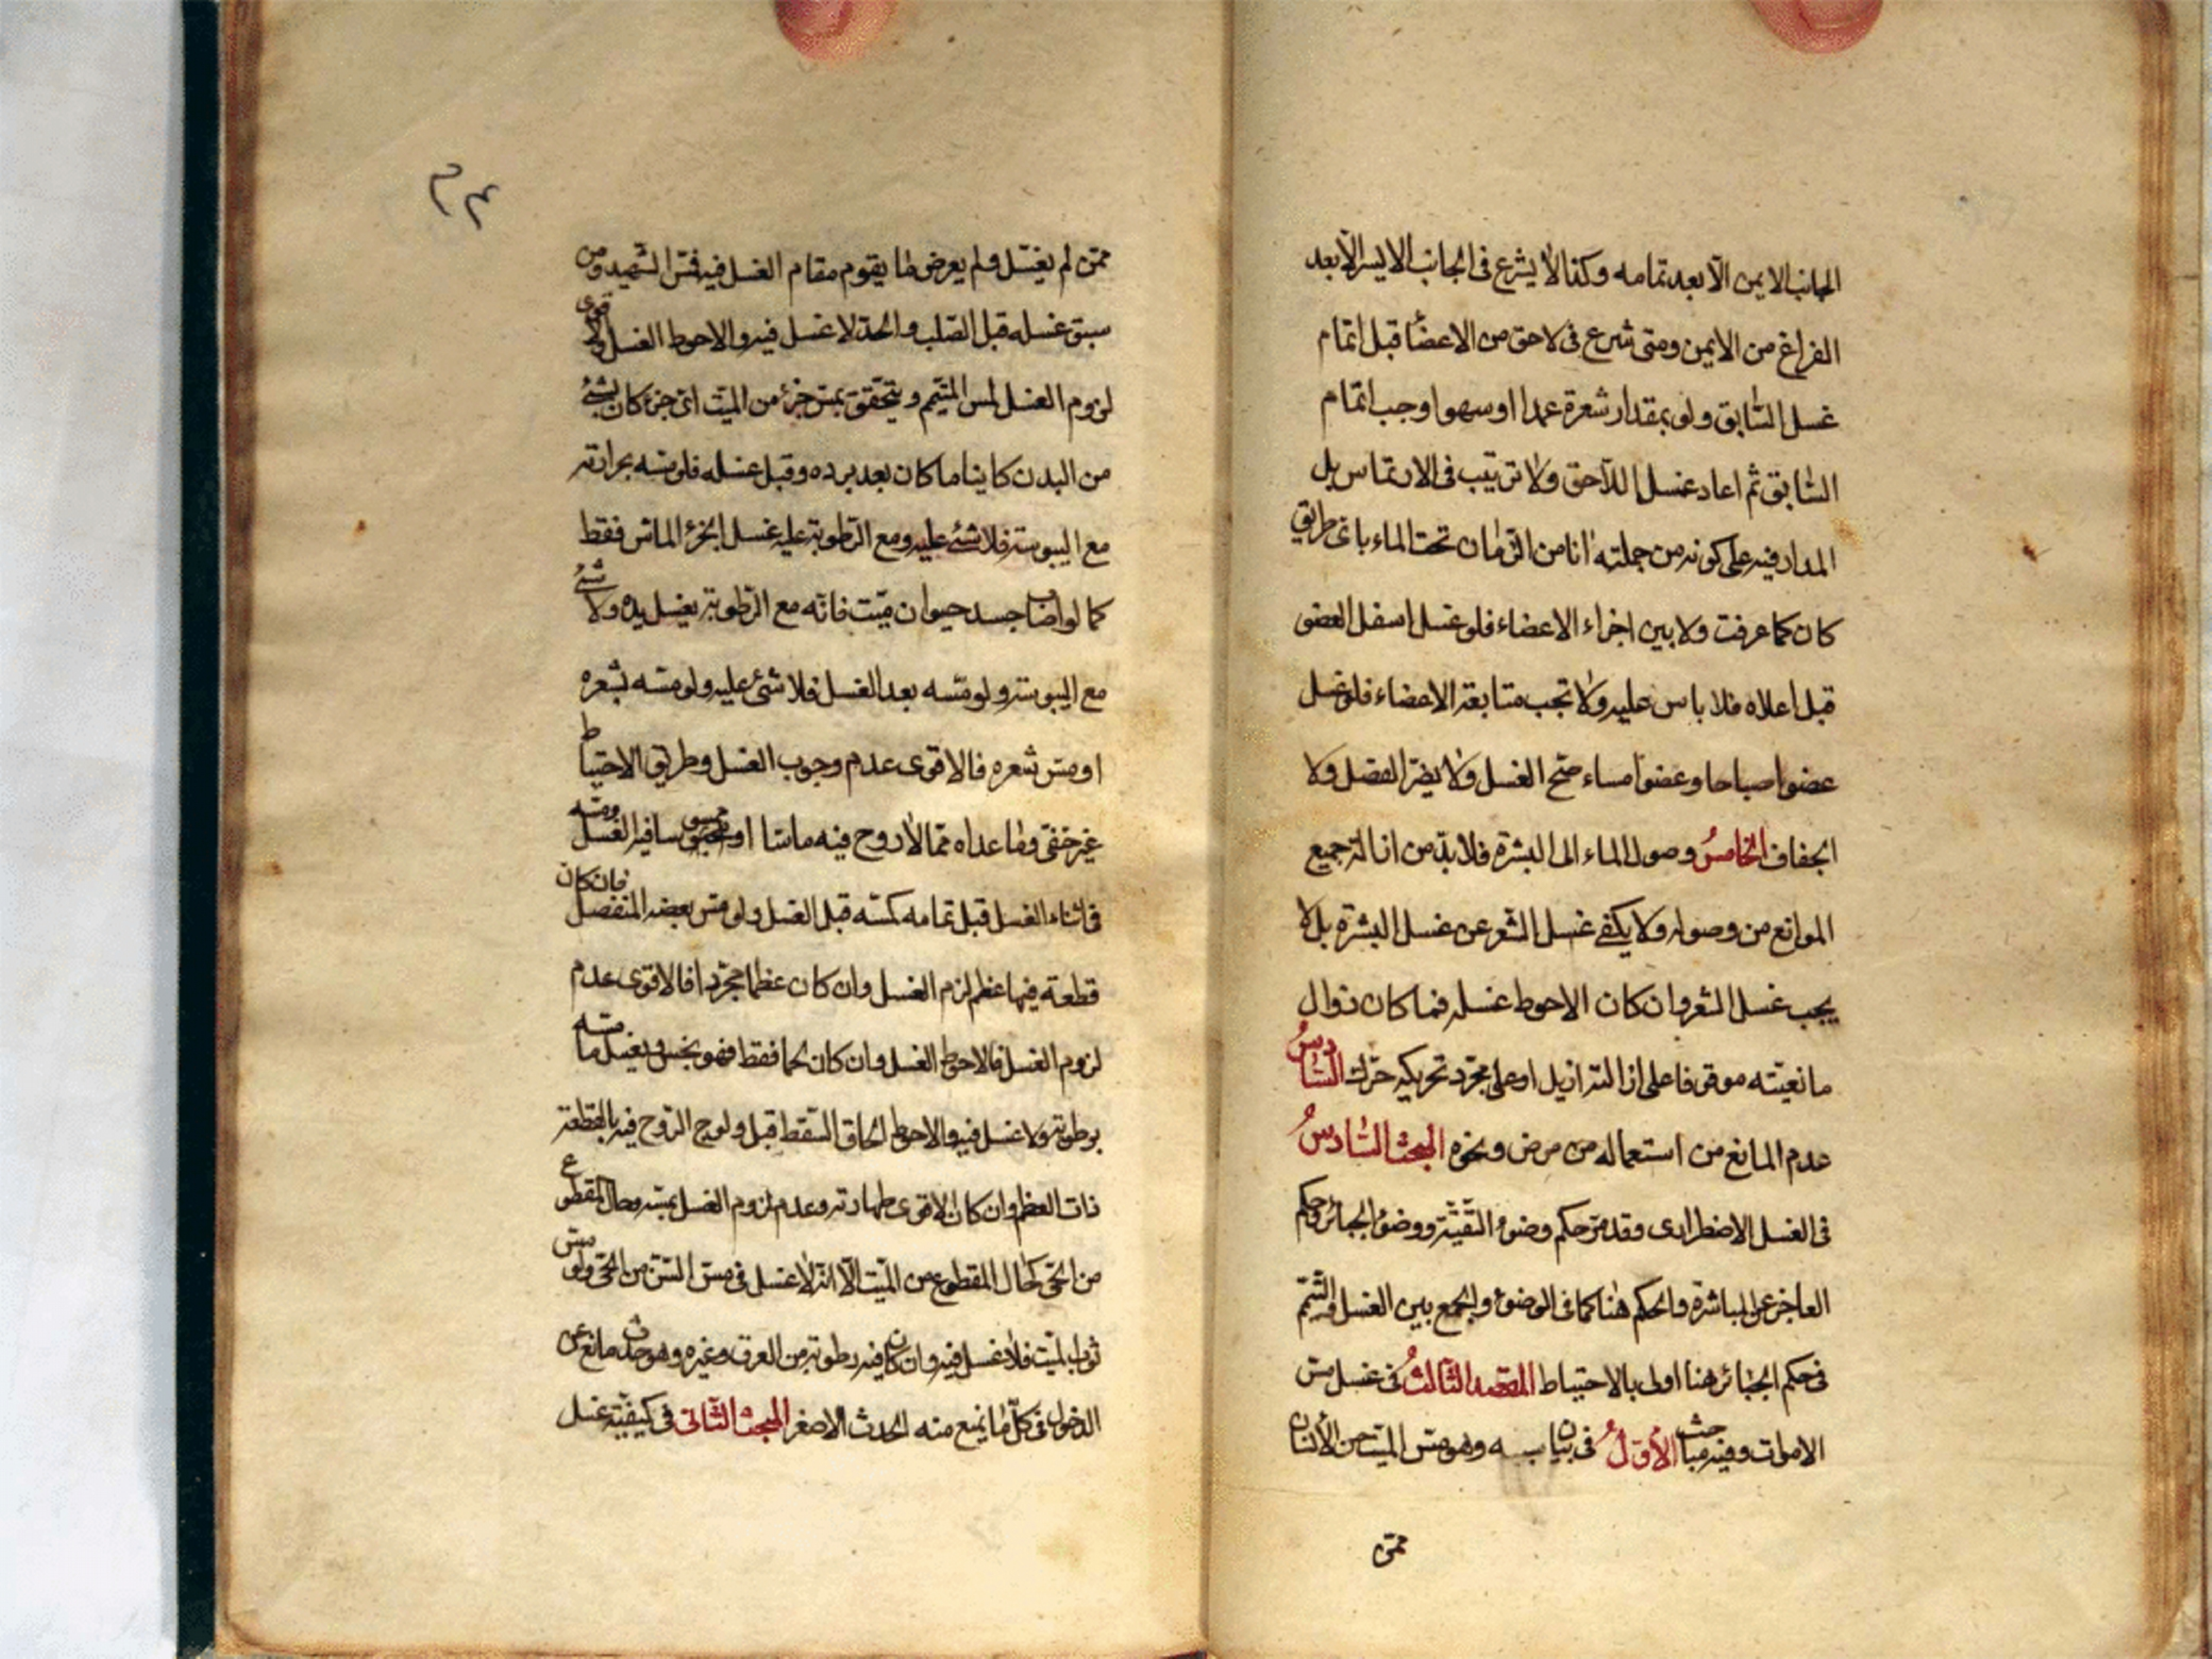 الجانب الايمن الّا بعد تمامه وكذا لا يشرع في الجانب الايسر الّا بعد
الفراغ من الايمن ومتى شرع في لاحق من الاعضا قبل اتمام
غسل السّابق ولو بمقدار شعرة عمدا او سهوا وجب اتمام
السّابق ثم اعاد غسل اللّاحق ولا ترتيب في الارتماس بل
المدار فيه على كونه من جملته انا من الزمان تحت الماء باي طريق
كان كما عرفت ولا بين اجزاء الاعضاء فلو غسل اسفل العضو
قبل اعلاه فلا باس عليه ولا تجب متابعة الاعضاء فلو غسل
عضوا صباحا وعضوا مساء صحّ الغسل ولا يضرّ الفصل ولا
الجفاف الخامسُ وصول الماء الى البشرة فلا بدّ من ازالة جميع
الموانع من وصوله ولا يكفي غسل الشّعر عن غسل البشرة بل لا
يجب غسل الشعر وان كان الاحوط غسله فما كان زوال
مانعيّته موقوفا على ازالته ازيل او على مجرّد تحريكه حرّك السّادسُ
عدم المانع من استعماله من مرض ونحوه المبحث السّادسُ
في الغسل الاضطراري وقد مرّ حكم وضوء التقيّة ووضوء الجبائر وحكم
العاجز عن المباشرة والحكم هنا كما في الوضوء والجمع بين الغسل والتيمّم
في حكم الجبائر هنا اولى بالاحتياط المقصد الثالثُ في غسل مسّ
الاموات وفيه مباحث الأوّلُ في بيان سببه وهو مسّ الميّت من الأنسان
ممّن
٢٤
ممّن لم يغسّل ولم يعرض ما يقوم مقام الغسل فيه فمسّ الشهيد ومن
سبق غسله قبل الصّلب والحدّ لا غسل فيه والاحوط الغسل والاقوى
لزوم الغسل لمس الميتّم ويتحقّق بمسّ جزء من الميّت اىّ جزء كان بشئ
من البدن كاينا ما كان بعد برده وقبل غسله فلو مسّه بحرارته
مع اليبوسة فلا شئ عليه ومع الرّطوبة عليه غسل الجزء الماسّ فقط
كما لو اصاب جسد حيوان ميّت فانّه مع الرّطوبة يغسل يده ولا شئ
مع اليبوسة ولو مسّه بعد الغسل فلا شئ عليه ولو مسّه بشعره
او مسّ شعره فالاقوى عدم وجوب الغسل وطريق الاحتياط
غير خفىّ وما عداه ممّا لا روح فيه ماسّا او ممسوسا فيه الغسل ومسّه
في اثناء الغسل قبل تمامه كمسّه قبل الغسل ولو مسّ بعضه المنفصل فان كان
قطعة فيها عظم لزم الغسل وان كان عظما مجرّدا فالاقوى عدم
لزوم الغسل فالاحوط الغسل وان كان لحما فقط فهو نجس ويغسل ما مسّه
برطوبة ولا غسل فيه والاحوط الحاق السّقط قبل ولوج الرّوح فيه بالقطعة
ذات العظم وان كان الاقوى طهارته وعدم لزوم الغسل بمسّه وحال المقطوع
من الحيّ كحال المقطوع من الميّت الّا انّه لا غسل في مسّ السّن من الحيّ ولو مسّ
ثوب الميّت فلا غسل فيه وان كان فيه رطوبة من العرق وغيره وهو حدث مانع عن
الدخول في كلّ ما يمنع منه الحدث الاصغر المبحث الثّاني في كيفيّة غسل